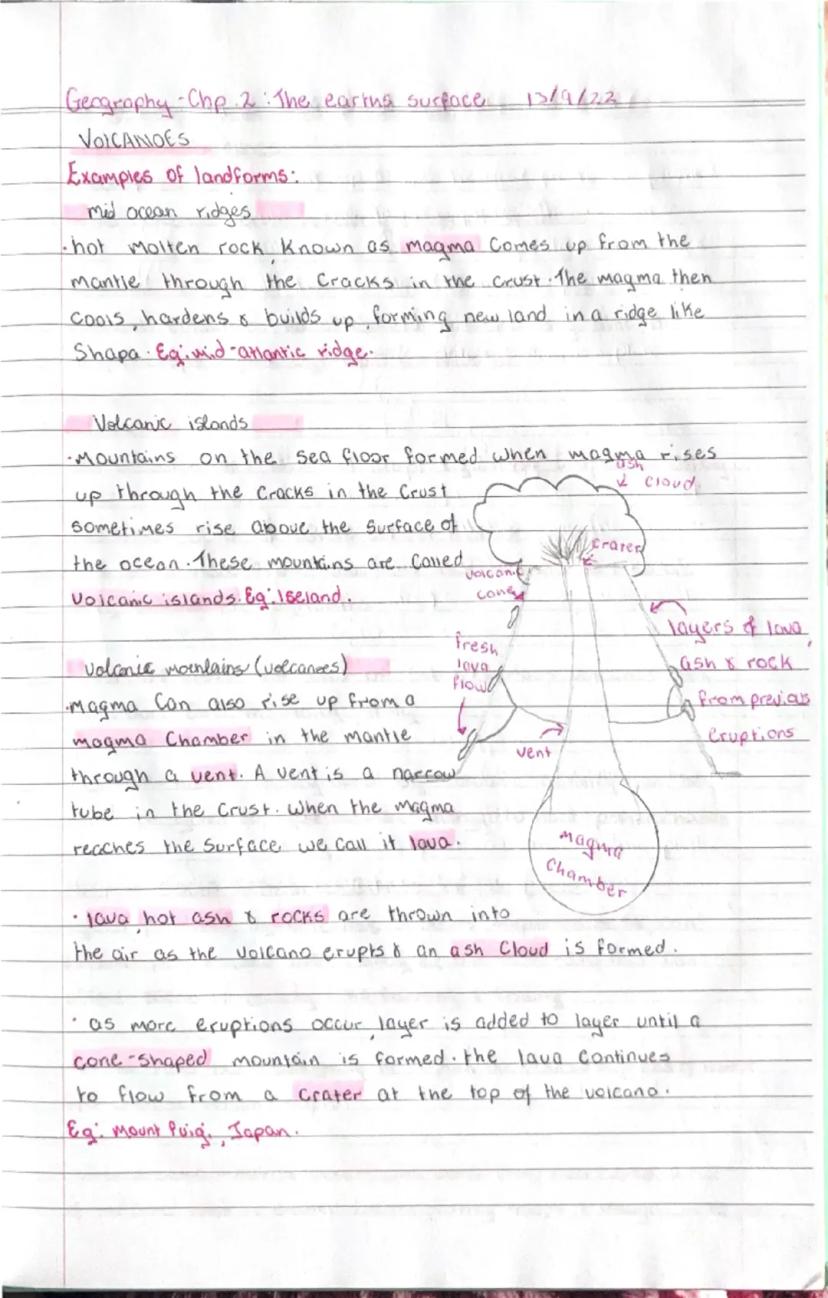 Geography - Chp 2 : The earths surface 13/9/22
VOLCANOES
Examples of landforms:
mid ocean ridges
• hot molten rock, known as magma comes up from the
mantle through the cracks in the crust. The magma then
cools, hardens & builds up, forming new land in a ridge like
Shapa. Eg: mid-atlantic ridge.
Volcanic islands
• Mountains on the sea floor formed when magma rises
up through the cracks in the crust
sometimes rise above the surface of
the ocean. These mountains are called
volcanic islands. Eg: Iseland.
volcanic mountains (volcanoes)
• magma can also rise up from a
magma chamber in the mantle
through a vent. A vent is a narrow
tube in the crust. when the magma
reaches the surface we call it lava.
• lava, hot ash & rocks are thrown into
the air as the volcano erupts & an ash cloud is formed.
• as more eruptions occur, layer is added to layer until a
cone-shaped mountain is formed. the lava continues
to flow from a crater at the top of the volcano.
Eg: mount Fuigi, Japan.
ash
cloud
crater
volcanic
cone
layers of lava,
ash & rock
from previous
eruptions
fresh
lava
flow
vent
magma
chamber